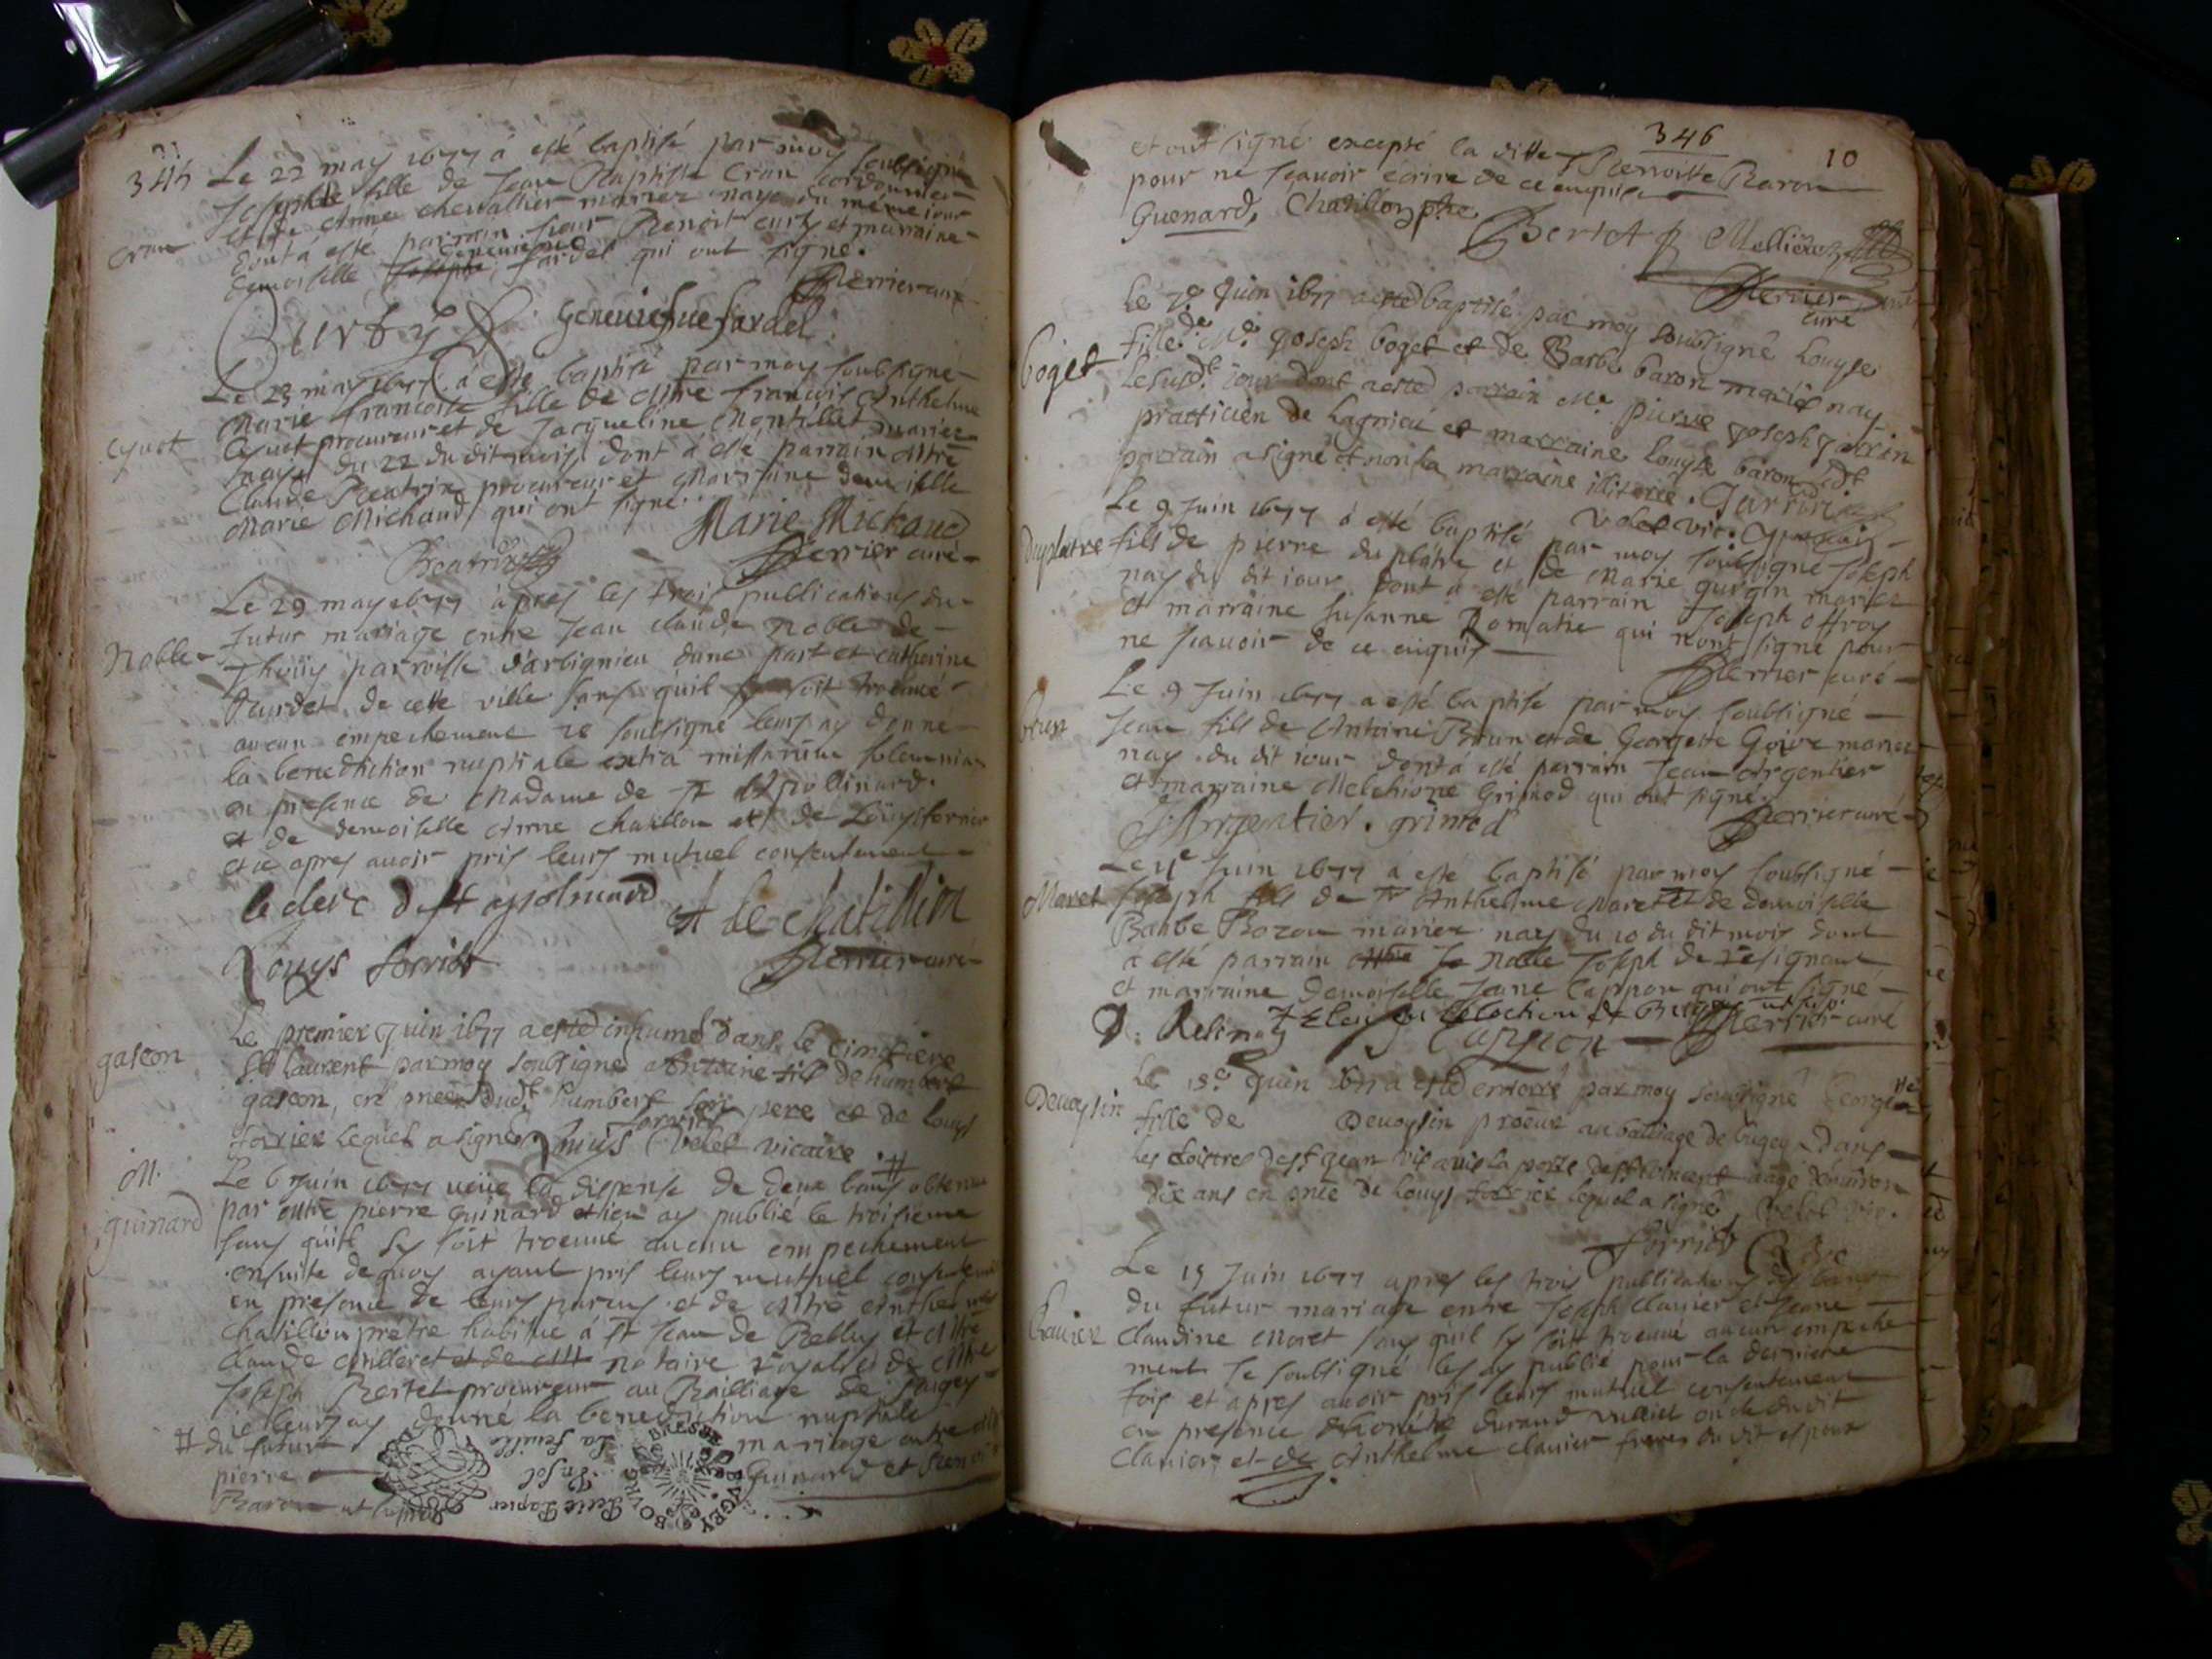 345
Le 22 may 1677 à esté baptisé par moy soubsigné
Josephte fille de Jean Baptiste Cran cordonnier
et de Anne Chevallier mariez naye du même jour
Cran
dont à esté parrain sieur Benoit Curty et marraine
demoiselle Geneviefve fardel qui ont signé.
Perrier curé
Curty Geneuiefue fardel
Le 23 may 1677 à esté baptisé par moy soubsigné
Marie francoise fille de Mtre francois Anthelme
Cyuot
Cyuot procureur et de Jacqueline Montillet mariez
naye du 22 du dit mois dont à esté parrain Mtre
Claude Beatrix procureur et Marraine demoiselle
Marie Michaud qui ont signé.
Marie Michaud
Beatrix Perrier curé
Le 29 may 1677 àpres les trois publications du
futur mariage entre Jean Claude Noble de
Noble
Thoüy parroisse d'arbignieu dune part et Catherine
de cette ville sans quil sy soit troeuué
aucun empechement je soubsigné leurs ay donne
la benediction nuptiale extra missarum solemnia
en presence de Madame de st Appollinard.
et de demoiselle Anne Chatillon et de Loüys ferrier
et ce apres auoir pris leurs mutuel consentement
le clerc d st apolinard A de chatillion
Louys forrier Perrier curé
Le premier Juin 1677 a esté inhumé dans le cimitiere
gascon
St laurent par moy soubsigné Antoine fils de humbert
gascon, en pnce dudt humbert son pere et de Louys
forrier lequel a signé Louys forrier Velet vicaire
M.
guinard
Le 6 Juin 1677 ueüe la dispense de deux bans # obtenue
par Mtre pierre Guinard et ieu ay publié le troisieme
sans quil sy soit troeuué aucun empechement
ensuite dequoy ayant pris leurs mutuel consentement
en presence de leurs parens et de Mtre Anthelme
Chatillon prétre habitue á st Jean de Belley et Mtre
Claude Mulleret et de Mt notaire royal et de Mtre
Joseph Bertet procureur au Bailliage de Bugey
ie leurs ay donné la benediction nuptiale
# du futur mariage entre
pierre Guinard et
Baron ut supra
BRESSE BVGEY BOVRG
Petit Papier
Un sol
La feuille
346
10
et ont signé excepté la ditte Pernette Baron
pour ne scauoir écrire de ce enquise
Guenard, Chatillon ptre
Bertet Mellieret
Perrier curé
Le 7e Juin 1677 a esté baptisé par moy soubsigné Louyse
boget
fille de Me Joseph boget et de Barbe baron mariés nay
le susdt jour dont a esté parrain Me pierre Joseph Jarrin
practicien de Lagnieu et marraine Louyse baron ledt
parrain a signé et non la marraine illiterée. Jarrin
Velet vic.
Le 9 Juin 1677 à esté baptisé par moy soubsigné Joseph
Duplatre
fils de pierre du plâtre et de Marie gurgin mariez
nay du dit iour dont à esté parrain Joseph offroy
et marraine Susanne Domatre qui n'ont signé pour
ne scauoir de ce enquis
Perrier curé
Le 9 Juin 1677 a esté baptisé par moy soubsigné
brun
Jean fils de Antoine Brun et de Georgette Goiure mariez
nay du dit iour dont à esté parrain Jean Argentier
et marraine Melchione Grimod qui ont signé.
J. Argentier. grimod Perrier curé
Le 11e Juin 1677 à esté baptisé par moy soubsigné
Maret
Joseph fils de Sr Anthelme Maret et de demoiselle
Barbe Bozon mariez nay du 10 du dit mois dont
a esté parrain Noble Joseph de résignant
et marraine demoiselle Jeane Cappon qui ont signé
en lelection de Bugey ut supra
Cappon Perrier curé
Le 15e Juin 1677 a esté enterré par moy soubsigné Georgette
Deuoysin
fille de Deuoysin procur au bailiage de bugey dans
les cloistres de st Jean vis a vis la porte de st vincent aagé denuiron
dix ans en pnce de Louys forrier lequel a signé, Velet vic.
forrier
Le 15 Juin 1677 apres les trois publications des bans
du futur mariage entre Joseph Clauier et Jeane
Clauier
Claudine Moret sans quil sy soit troeuué aucun empeche
ment je soubsigné les ay publié pour la derniere
fois et apres auoir pris leurs mutuel consentement
en presence durand oncle du dit
Clauier, et de Anthelme Clauier frere du dit epoux